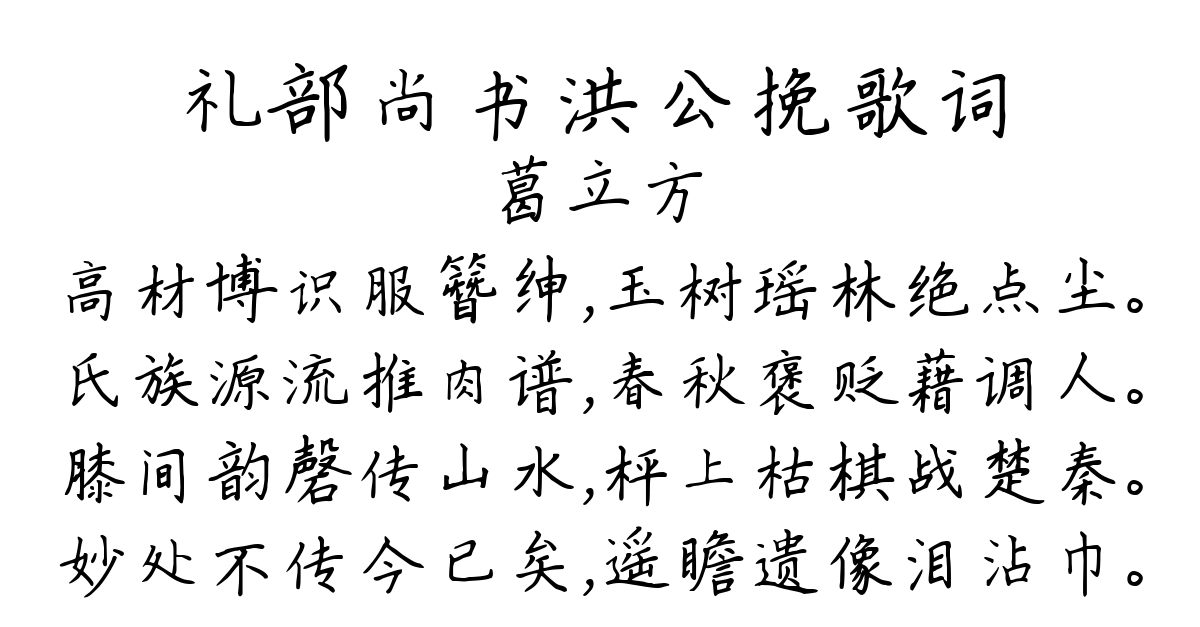 礼部尚书洪公挽歌词
葛立方
高材博识服簪绅,玉树瑶林绝点尘。
氏族源流推肉谱,春秋褒贬藉调人。
膝间韵磬传山水,枰上枯棋战楚秦。
妙处不传今已矣,遥瞻遗像泪沾巾。